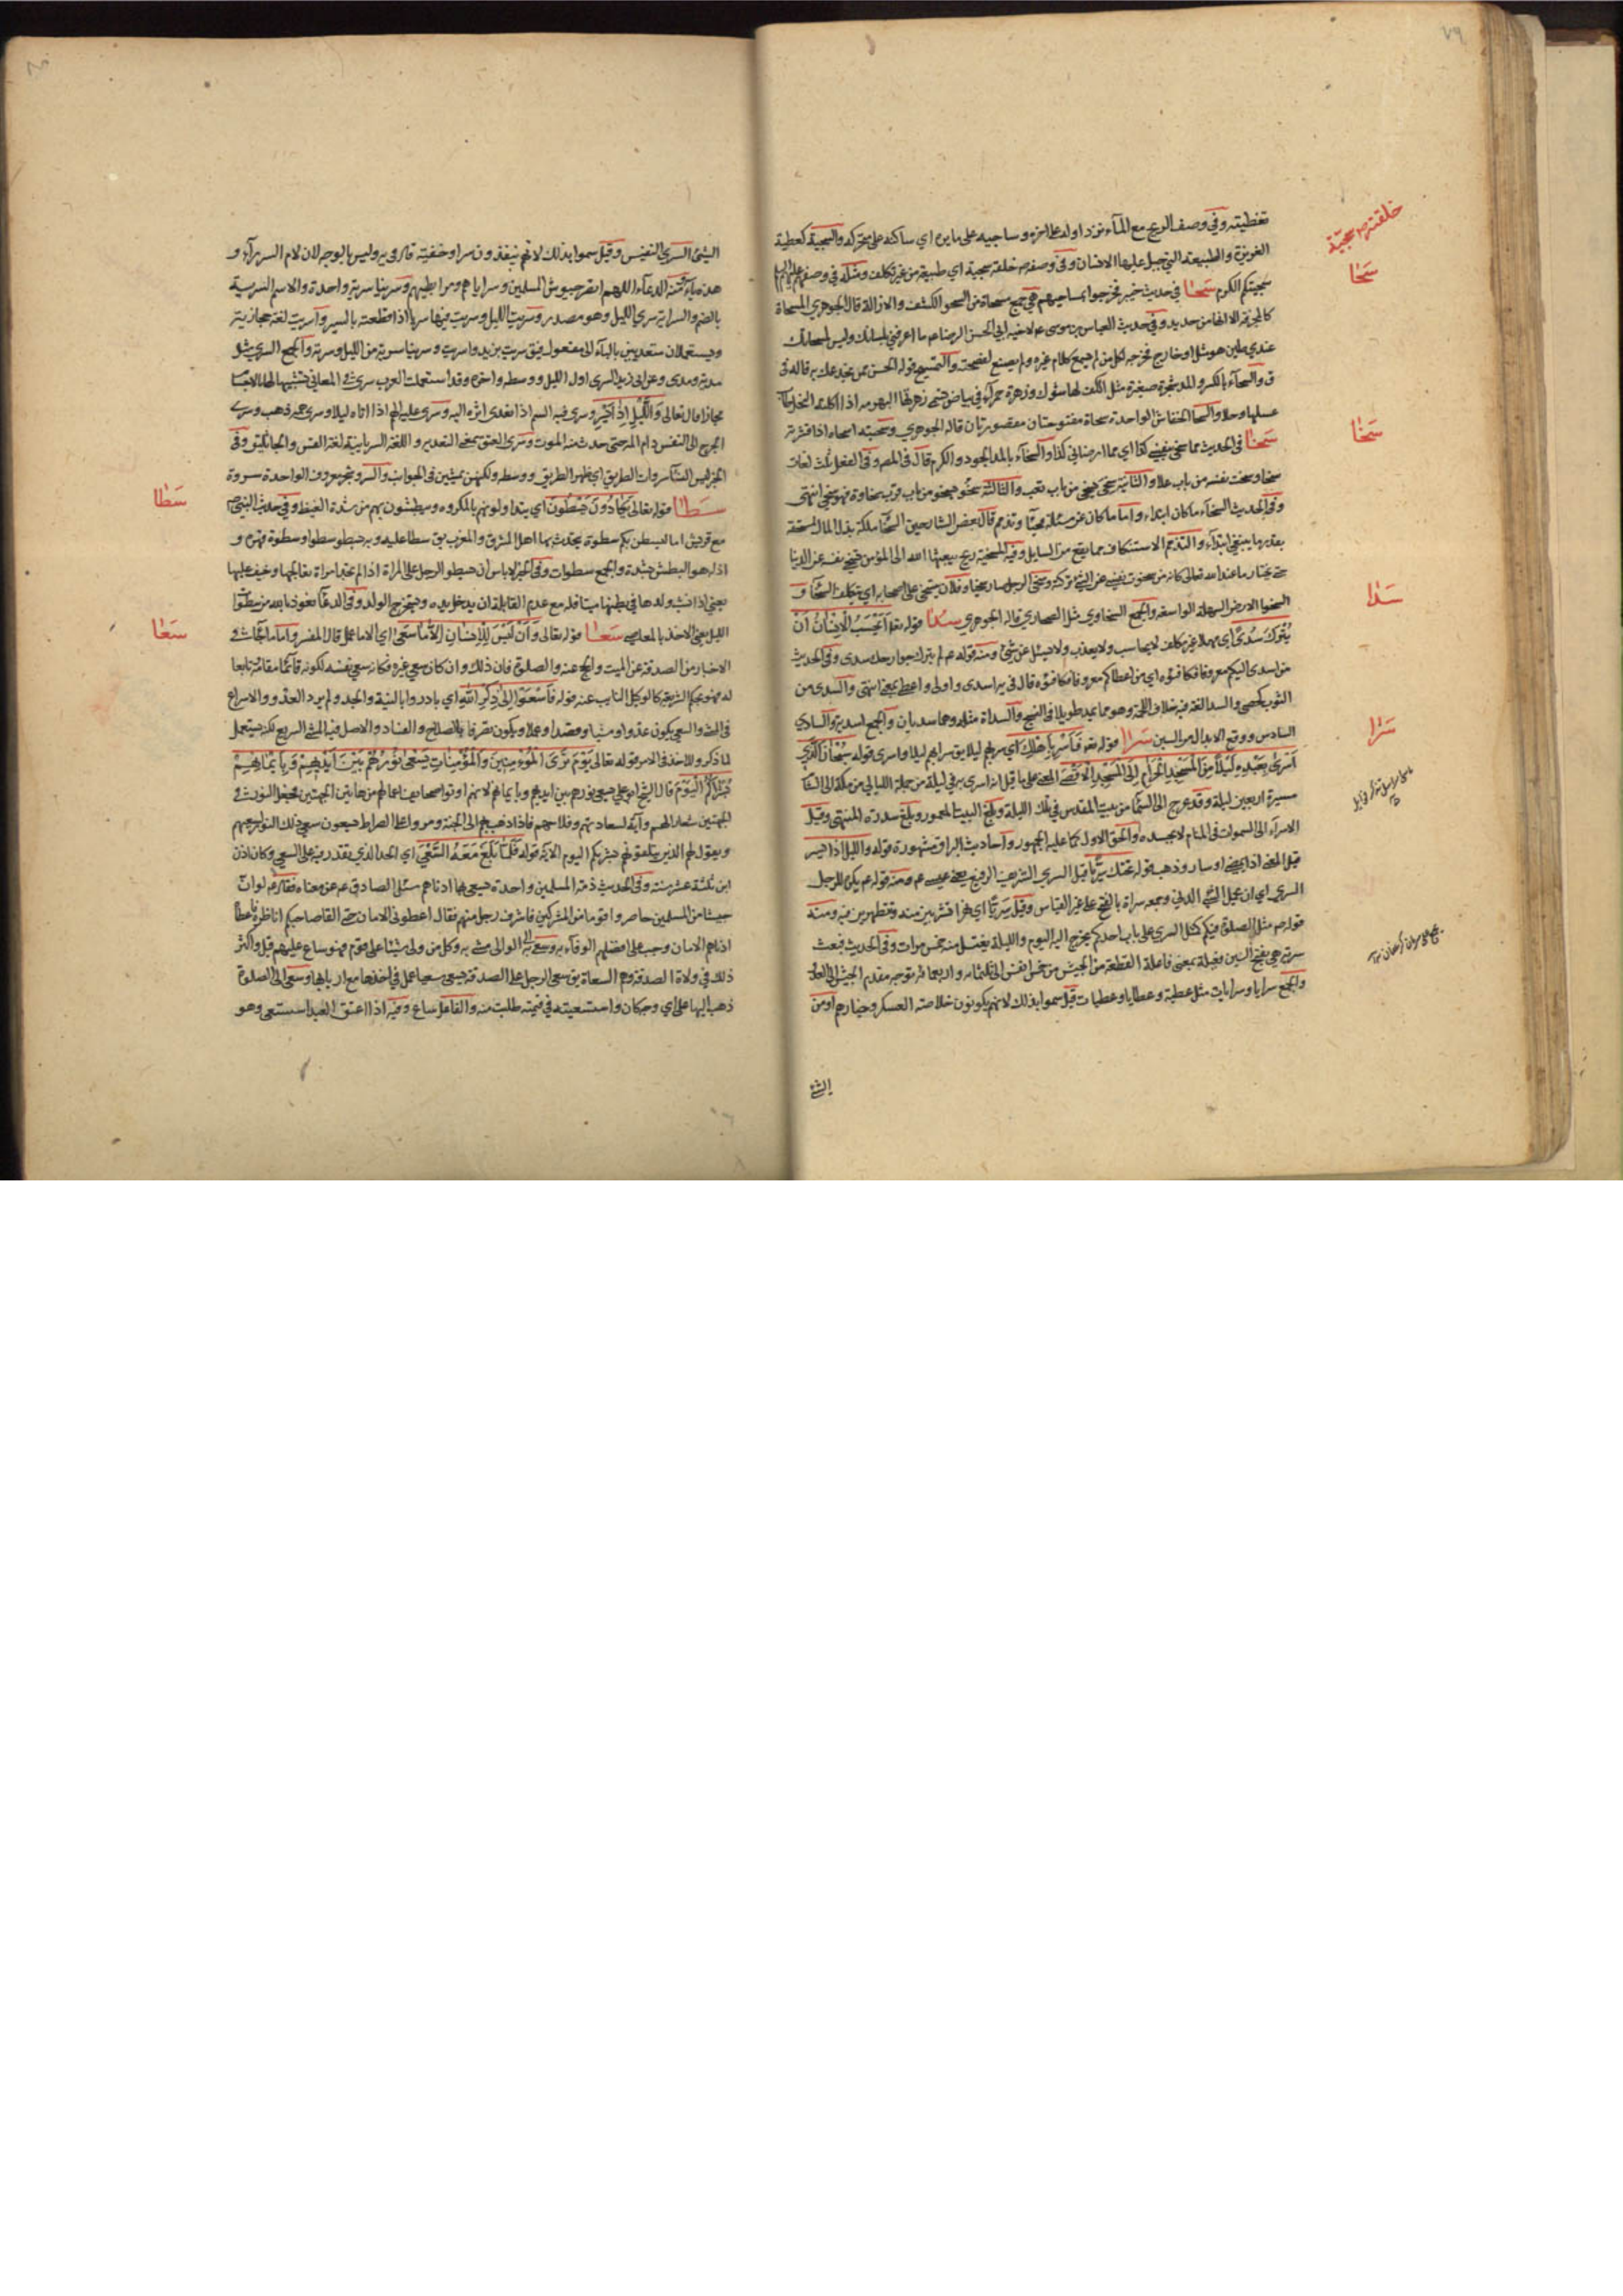 تغطيته وفي وصف الريح مع الماء تورد اوله على اخره وساجيه على مايره اي ساكنه على متحركه والسجية كعطية
الغريزة والطبيعة التي جبل عليها الانسان وفي وصفهم خلقته سجية اي طبيعة من غير تكلف ومثله في وصفهم
سجيتكم الكرم سَحَا في حديث خيبر فخرجوا بمساحيهم هي جمع مسحاة من السحو الكشف والازالة قال الجوهري المسحاة
كالمجرفة الا انها من حديد وفي حديث العباس بن موسى لاخيه ابي الحسن الرضا ما اعرفني بلسانك وليس لمسحاتك
عندي طين
ق والسحاء بالكسر والمد شجرة صغيرة مثل الكف لها شوك وزهرة حمراء في بياض تسمى زهرتها البهرمه اذا اكلته النحل
عسلها وحلا والسحا الخفاش الواحدة سحاة مفتوحتان مقصورتان قاله الجوهري
سَخَا في الحديث مما سخى بنفسي كذا اي مما ارضاني كذا والسخاء بالمد الجود والكرم قال في المصـ وفي الفعل ثلث لغات
سخا وسخت نفسه من باب علا والثانية سخى يسخى من باب تعب والثالثة سخو يسخو من باب قرب سخاوة فهو سخي انتهى
وفي الحديث السخاء ما كان ابتداء واما ما كان عن مسئلة فحياء وتذمم قال بعض الشارحين السخا ملكة بذل المال لمستحقه
بقدر ما ينبغي ابتداء والتذمم الاستنكاف مما يقع من السايل وفيه المسخية ريح يبعثها الله الى المؤمن تسخي نفسه عن الدنيا
حتى يختار ما عند الله تعالى كانه من سخوت نفسي عن الشيء تركته وسخى الرجل صار سخيا وفلان يتسخى على اصحابه اي يتكلف السخاء و
السخوا الارض السهلة الواسعة والجمع السخاوي مثل الصحاري قاله الجوهري سَدَا قوله تعالى اَيَحْسَبُ الْاِنْسَانُ اَنْ
يُتْرَكَ سُدًى اي مهملا غير مكلف لا يحاسب ولا يعذب ولا يسئل عن شيء ومنه قوله لم يترك جوارحك سدى وفي الحديث
من اسدى اليكم معروفا فكافئوه اي من اعطاكم معروفا فكافئوه قال في يه اسدى واولى واعطى بمعنى انتهى والسدى من
الثوب كحصى والسدا لغة فيه خلاف اللحمة وهو مما يمد طويلا في النسج والسداة مثله وهما سديان والجمع اسدية والسادي
السادس ووقع الابدال من السين سَرَا قوله تعالى فَاَسْرِ بِاَهْلِكَ اي سر بهم ليلا يق سرا بهم ليلا واسرى قوله سُبْحَانَ الَّذِي
اَسْرَى بِعَبْدِهِ لَيْلًا مِنَ الْمَسْجِدِ الْحَرَامِ اِلَى الْمَسْجِدِ الْاَقْصَى المعنى على ما قيل انه اسرى به في ليلة من جملة الليالي من مكة الى الشام
مسيرة اربعين ليلة وقد عرج الى السماء من بيت المقدس في تلك الليلة وبلغ البيت المعمور وبلغ سدرة المنتهى وقيل
الاسراء الى السموات في المنام لا بجسده والحق الاول كما عليه الجمهور واحاديث البراق مشهورة قوله والليل اذا يسر
قيل المعنى اذا يمضي او سار وذهب قوله تحتك سَرِيًّا قيل السري الشريف الرفيع يعني عيسى ومنه قوله يكن للرجل
السري اي ان يحمل الشيء الدني وجمعه سراة بالفتح على غير القياس وقيل سريا اي نهرا تشربين منه وتتطهرين فيه ومنه
قولهم مثل الصلوة فيكم كمثل السري على باب احدكم يخرج اليه اليوم والليلة يغتسل منه خمس مرات وفي الحديث فبعث
سرية هي بفتح السين فعيلة بمعنى فاعلة القطعة من الجيش من خمس انفس الى ثلثمائة واربعمائة توجه مقدم الجيش الى العدو
والجمع سرايا وسرايات مثل عطية وعطايا وعطيات قيل سموا بذلك لانهم يكونون خلاصة العسكر وخيارهم او من
الشئ
خلقتهم سجيّة
سَحَا
سَخَا
سَدَا
سَرَا
الشئ السري النفيس وقيل سموا بذلك لانهم ينفذون سرا وخفية قال في يه وليس بالوجه لان لام السر راء و
هذه ياء ومنه الدعاء اللهم انصر جيوش المسلمين وسراياهم ومرابطيهم وسرينا سرية واحدة والاسم السرية
بالضم والسراية سرى الليل وهو مصدر وسريت الليل وسريت فيها سريا اذا قطعته بالسير واسريت لغة حجازية
ويستعملان متعديين بالباء الى مفعول فيق سريت بزيد واسريت وسرينا سرية من الليل وسرية والجمع السرى مثل
مدية ومدى وعن ابي زيد السرى اول الليل ووسطه واخره وقد استعملت العرب سرى في المعاني تشبيها لها بالاجسام
مجازا قال تعالى وَاللَّيْلِ اِذَا يَسْرِ وسرى فيه السم اذا تعدى اثره اليه وسرى عليه الهم اذا اتاه ليلا وسرى همه ذهب وسرى
الجرح الى النفس دام المه حتى حدث منه الموت وسرى العتق بمعنى التعدية و اللغة السريانية لغة القس والجاثليق وفي
الخبر ليس للنساء سروات الطريق اي ظهر الطريق ووسطه ولكنهن يمشين في الجوانب والسرو شجر معروف الواحدة سروة
سَطَا قوله تعالى يَكَادُونَ يَسْطُونَ اي يتداولونهم بالمكروه ويبطشون بهم من شدة الغيظ وفي حديث النبي
مع قريش اما ليسطن بكم سطوة يتحدث بها اهل المشرق والمغرب يق سطا عليه وبه يسطو سطوا وسطوة قهره و
اذله وهو البطش بشدة والجمع سطوات وفي الخبر لا باس ان يسطو الرجل على المراة اذا لم تجد امراة تعالجها وخيف عليها
يعني اذا نشب ولدها في بطنها ميتا فله مع عدم القابلة ان يدخل يده ويستخرج الولد وفي الدعاء نعوذ بالله من سطوات
الليل يعني الاخذ بالمعاصي سَعَا قوله تعالى وَاَنْ لَيْسَ لِلْاِنْسَانِ اِلَّا مَا سَعَى اي الا ما عمل قال المفسر واما ما جاء في
الاخبار من الصدقة عن الميت والحج عنه والصلوة فان ذلك وان كان سعي غيره فكانه سعي نفسه لكونه قائما مقامه تابعا
له فهو بحكم الشريعة كالوكيل النايب عنه قوله فَاسْعَوْا اِلَى ذِكْرِ اللهِ اي بادروا بالنية والجد ولم يرد العدو والاسراع
في المشي والسعي يكون عدوا ومشيا وقصدا وعملا ويكون تصرفا بالصلاح والفساد والاصل فيه المشي السريع لكنه يستعمل
لما ذكر وللاخذ في الامر قوله تعالى يَوْمَ تَرَى الْمُؤْمِنِينَ وَالْمُؤْمِنَاتِ يَسْعَى نُورُهُمْ بَيْنَ اَيْدِيهِمْ وَبِاَيْمَانِهِمْ
بُشْرَاكُمُ الْيَوْمَ قال الشيخ ابو علي يسعى نورهم بين ايديهم وبايمانهم لانهم اوتوا صحايف اعمالهم من هاتين الجهتين فجعل النور في
الجهتين شعارا لهم وآية لسعادتهم وفلاحهم فاذا ذهب بهم الى الجنة ومروا على الصراط يسعون سعى ذلك النور بسعيهم
ويقول لهم الذين يتلقونهم بشريكم اليوم الآية قوله فَلَمَّا بَلَغَ مَعَهُ السَّعْيَ اي الحد الذي يقدر فيه على السعي وكان اذن
ابن ثلثة عشر سنة وفي الحديث ذمة المسلمين واحدة يسعى بها ادناهم سئل الصادق عن معناه فقال لو ان
جيشا من المسلمين حاصروا قوما من المشركين فاشرف رجل منهم فقال اعطوني الامان حتى القى صاحبكم اناظره فاعطاه
ادناهم الامان وجب على افضلهم الوفاء به وسعى به الى الوالي مشى به وكل من ولي شيئا على قوم فهو ساع عليهم قيل واكثر
ذلك في ولاة الصدقة وهم السعاة يق سعى الرجل على الصدقة يسعى سعيا عمل في اخذها من اربابها وسعى الى الصلوة
ذهب اليها على اي وجه كان واستسعيته في قيمته طلبت منه والفاعل ساع وفيه اذا اعتق العبد استسعى وهو
سَطَا
سَعَا